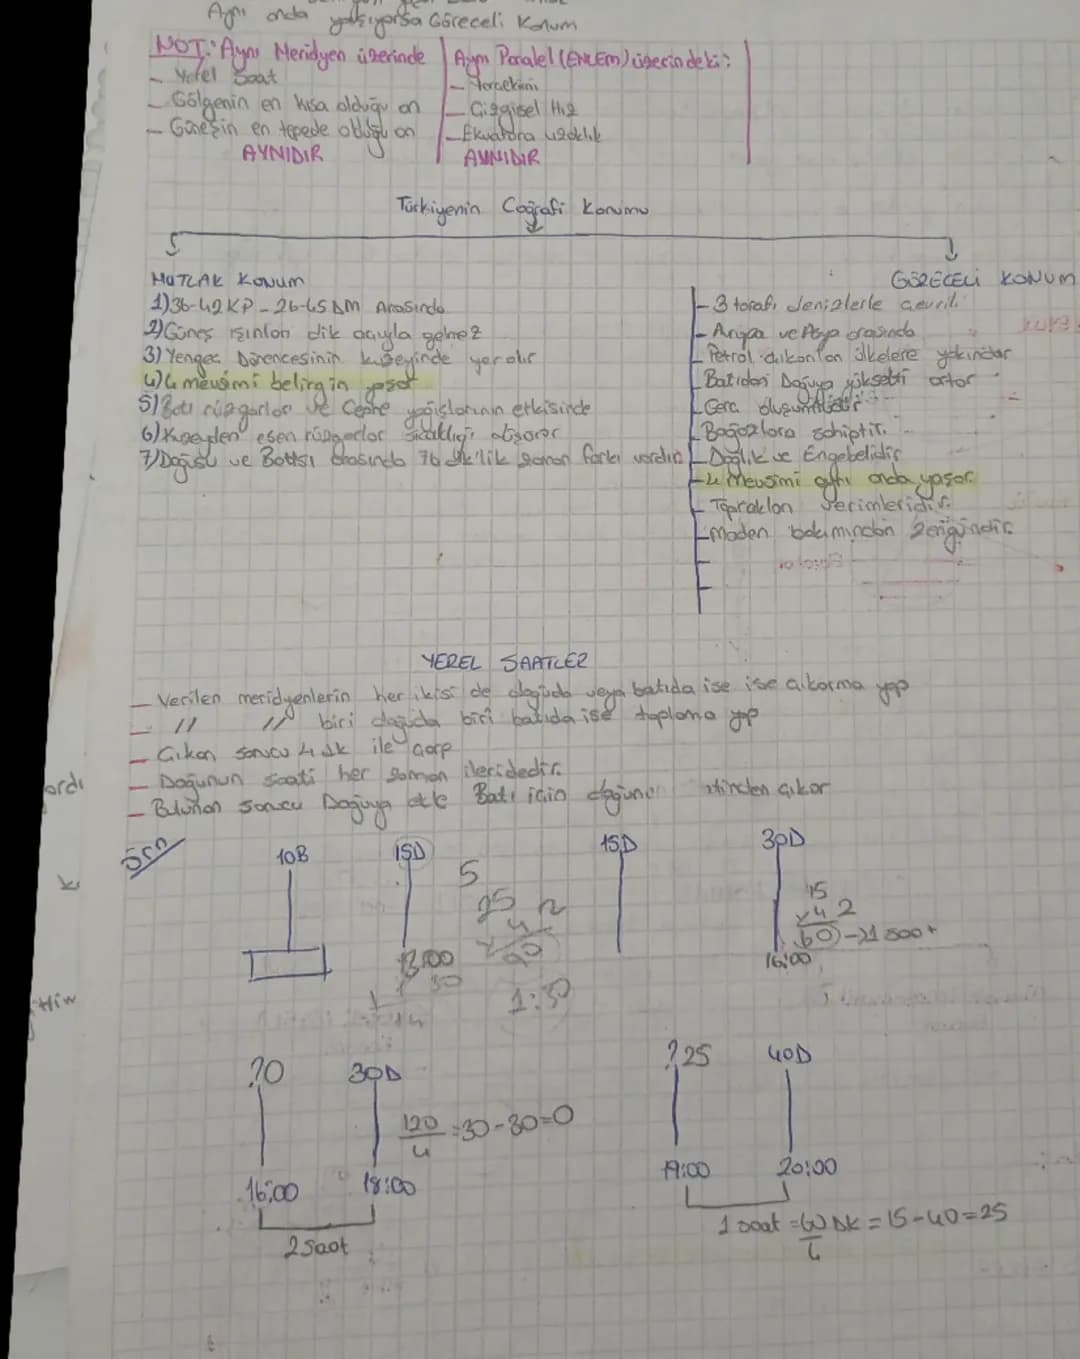 Aynı anda yaşıyorsa Göreceli Konum
NOT: Aynı Meridyen üzerinde
- Yerel Saat
- Gölgenin en kısa olduğu an
- Güneşin en tepede olduğu an
AYNIDIR
Aynı Paralel (ENLEM) üzerindeki:
- Yerçekimi
- Çizgisel Hız
- Ekvatora uzaklık
AYNIDIR
Türkiyenin Coğrafi Konumu
MUTLAK KONUM
1) 36-42 KP - 26-45 DM Arasında
2) Güneş ışınları dik açıyla gelmez
3) Yengeç Dönencesinin kuzeyinde yer alır
4) 4 mevsimi belirgin yaşar
5) Batı rüzgarları ve Cephe yağışlarının etkisinde
6) Kuzeyden esen rüzgarlar sıcaklığı düşürür
7) Doğusu ve Batısı arasında 76 dk'lik zaman farkı vardır
GÖRECELİ KONUM
- 3 tarafı denizlerle çevrili
- Avrupa ve Asya arasında
- Petrol çıkarılan ülkelere yakındır
- Batıdan Doğuya yükselti artar
- Genç oluşumludur
- Boğazlara sahiptir.
- Dağlık ve Engebelidir
- 4 Mevsimi aynı anda yaşar.
- Toprakları verimlidir.
- Maden bakımından zengindir.
YEREL SAATLER
- Verilen meridyenlerin her ikisi de doğuda veya batıda ise ise çıkarma yap
- " " biri doğuda biri batıda ise toplama yap
- Çıkan sonucu 4 dk ile çarp
- Doğunun saati her zaman ileridedir.
- Bulunan sonucu Doğuya ekle Batı için doğunun
Örn
10B 15D
13:00
25
1:30
15D 30D
15
x4
60 - 1 saat +
16:00
?0 30D
120/4 = 30-30=0
16:00 18:00
2 Saat
?25 40D
19:00 20:00
1 saat = 60 DK = 15-40=25
4